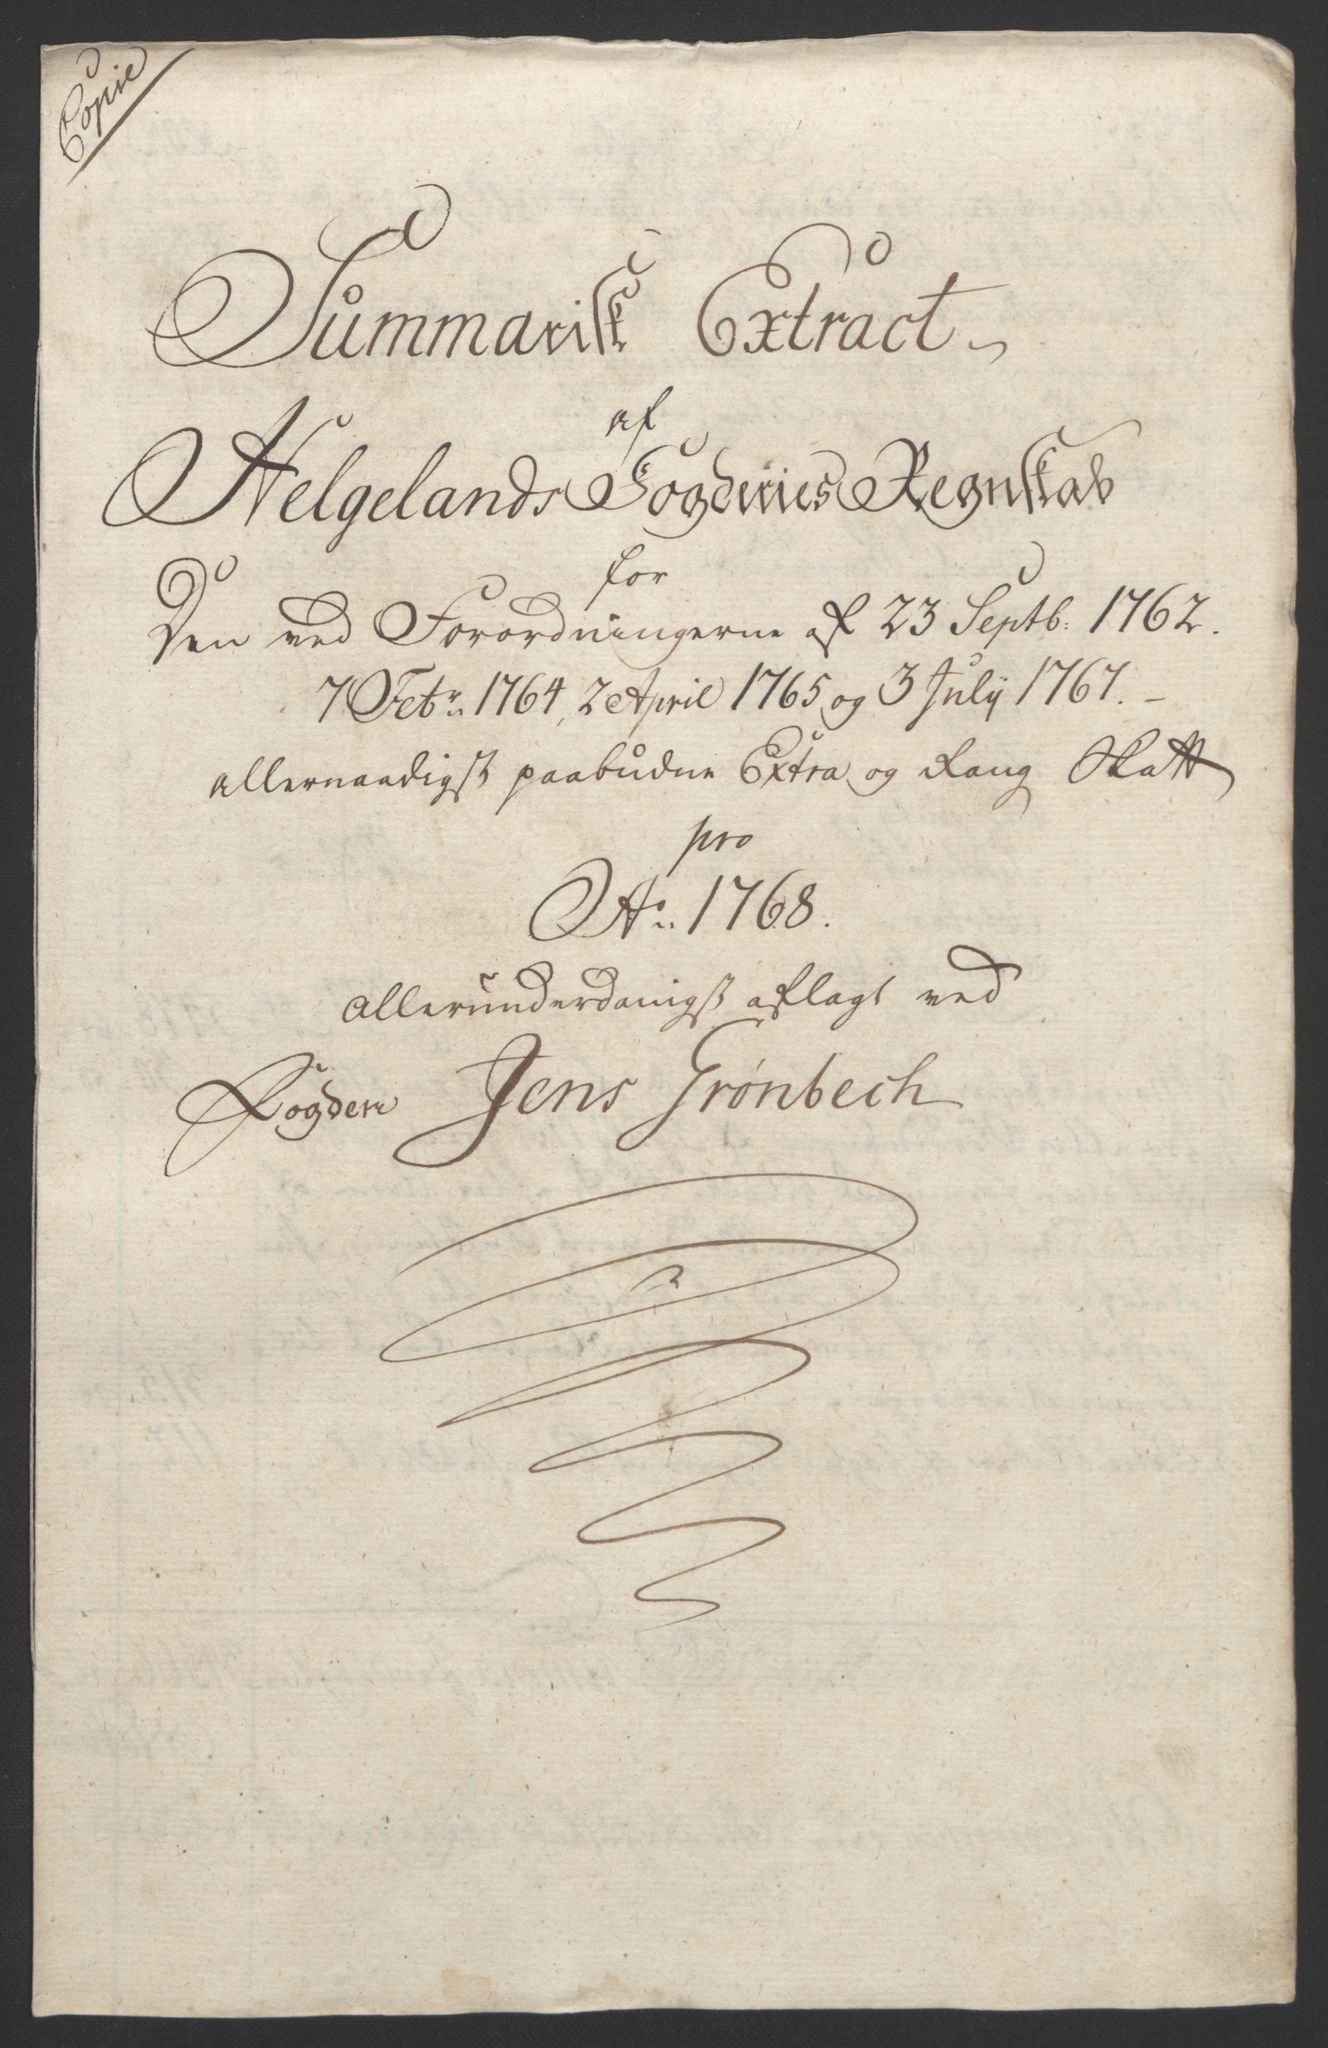 Copie
Summarisk Extract
af
Helgelands Fogderies Regnskab
for
Den ved Forordningerne af 23 Septb: 1762.
7 Febr: 1764, 2 April 1765 og 3 Julij 1767.
allernaadigst paabudne Extra og Rang Skatt
pro
Ao: 1768.
allerunderdanigst aflagt ved
Fogden Jens Grønbech